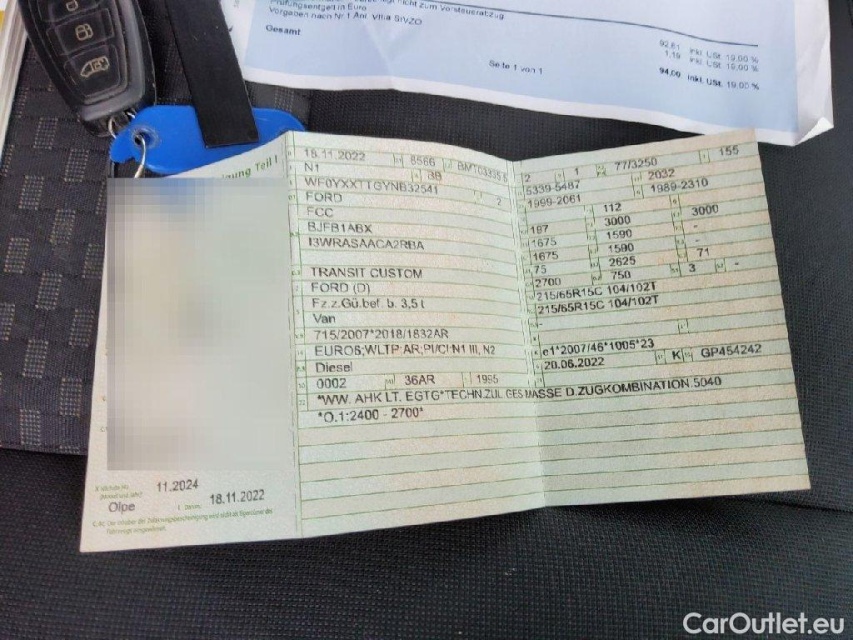 nicht zum Vorsteuerabzug
Prüfungsentgelt in Euro
Vorgaben nach Nr.1 Anl. VIIIa StVZO
92,81 inkl. USt. 19,00 %
1,19 inkl. USt. 19,00 %
Gesamt 94,00 inkl. USt. 19,00 %
Seite 1 von 1
Teil I
18.11.2022 8566
N1
WF0YXXTTGYNB32541 2
FORD
FCC
BJFB1ABX
I3WRASAACA2RBA
TRANSIT CUSTOM
FORD (D)
Fz.z.Gü.bef. b. 3,5 t
Van
715/2007*2018/1832AR
EURO6;WLTP;AR;PI/CI:N1 III, N2
Diesel
0002 36AR 1995
*WW. AHK LT. EGTG*TECHN.ZUL GES MASSE D.ZUGKOMBINATION 5040
*O.1:2400 - 2700*
2 1 77/3250 155
5339-5487 2032
1999-2061 1989-2310
112
187 3000 3000
1675 1590 -
1675 1590 -
75 2625 71
2700 750 3 -
215/65R15C 104/102T
215/65R15C 104/102T
-
e1*2007/46*1005*23
20.06.2022 K GP454242
11.2024
Olpe 18.11.2022
CarOutlet.eu